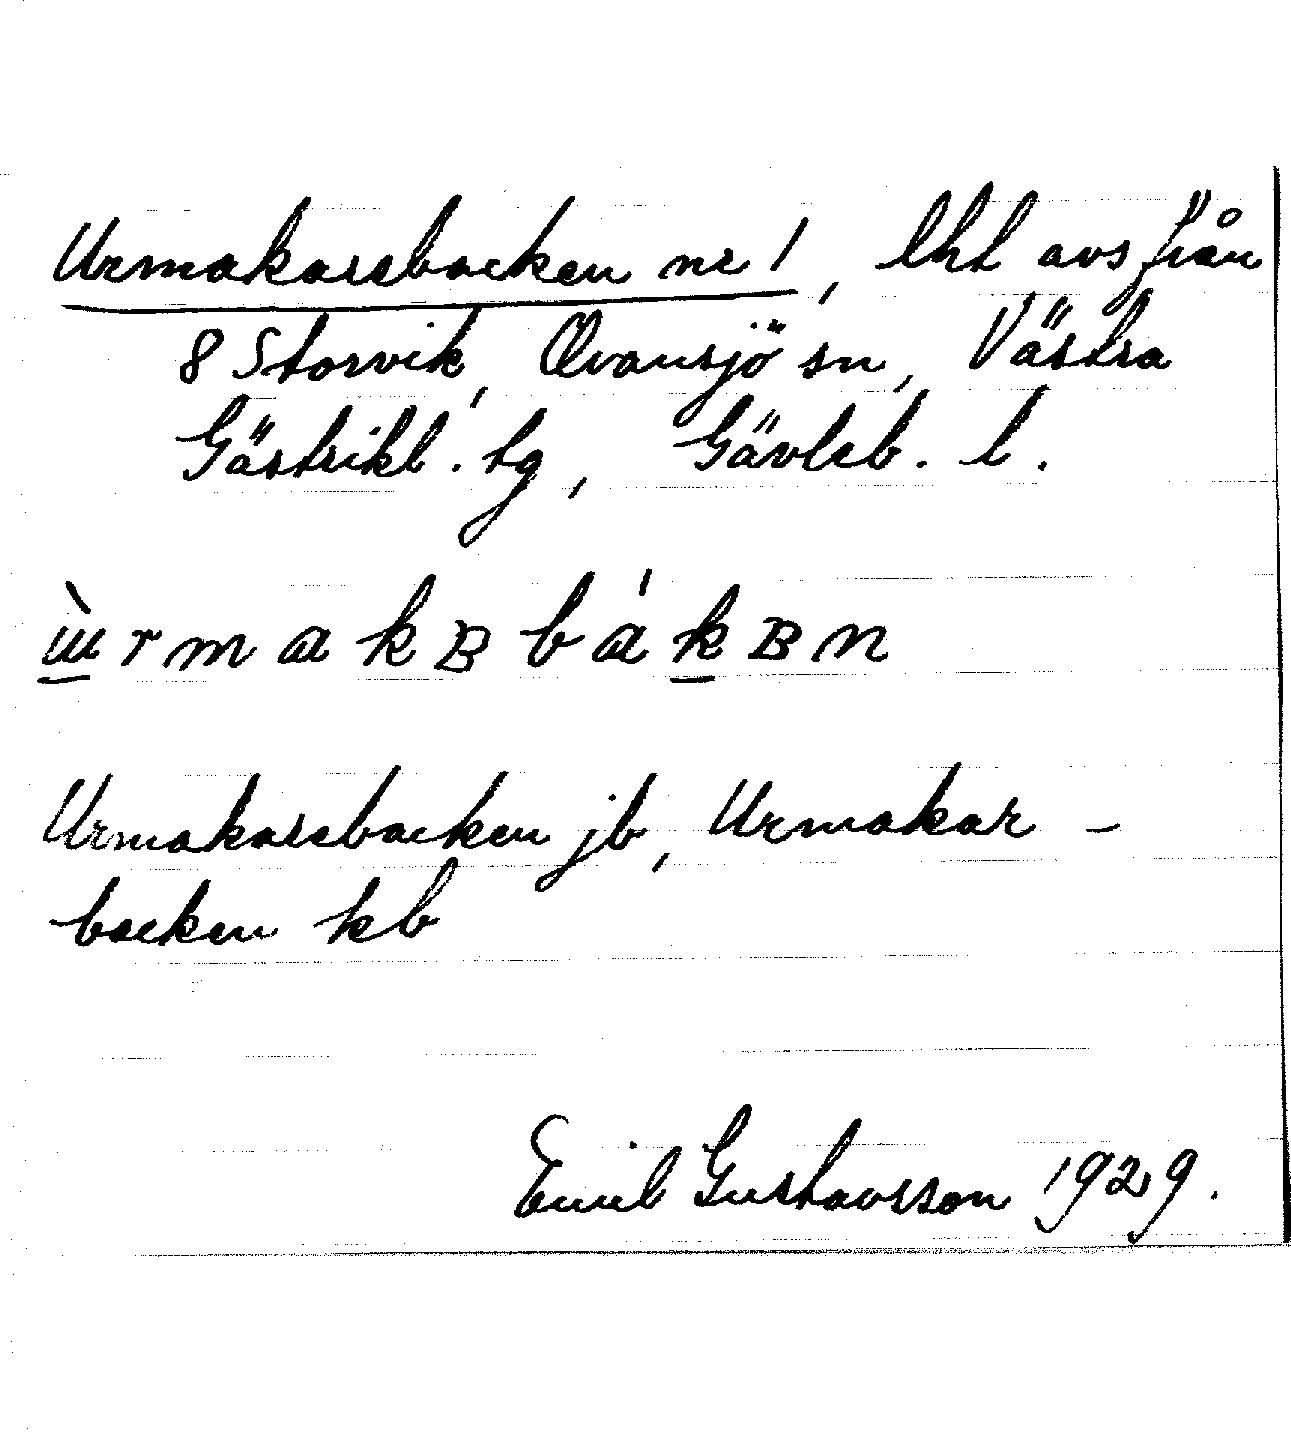 Urmakarebacken nr 1, lht avs från
8 Storvik, Ovansjö sn, Västra
Gästrikl. tg, Gävleb. l.
ɯ̀rmakʙbákʙn
Urmakarebacken jb, Urmakar-
backen kb
Emil Gustavsson 1929.